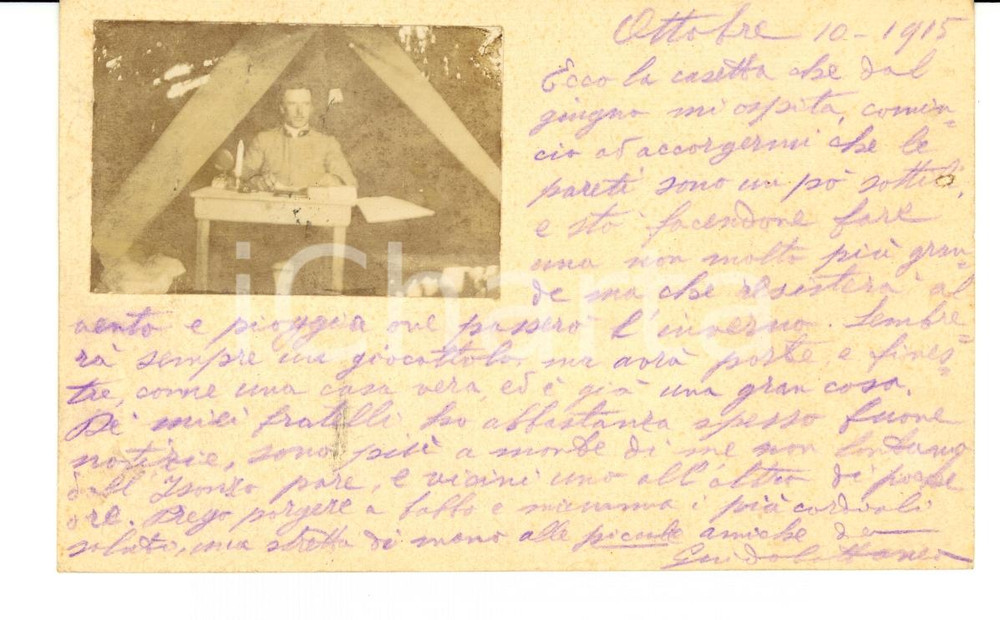 Ottobre 10 - 1915
Ecco la casetta che dal
giugno mi ospita, comin=
cio ad accorgermi che le
pareti sono un pò sottili,
e sto facendone fare
una non molto più gran=
de ma che resisterà al
vento e pioggia ove passerò l'inverno. Sembre
rà sempre un giocattolo, ma avrà porte e fines=
tre, come una casa vera, ed è già una gran cosa.
Dè miei fratelli ho abbastanza spesso buone
notizie, sono più a monte di me non lontano
dall'Isonzo pare, e vicini uno all'altro di poche
ore. Prego porgere a babbo e mamma i più cordiali
saluti, una stretta di mano alle piccole amiche da
Guido
iCharta